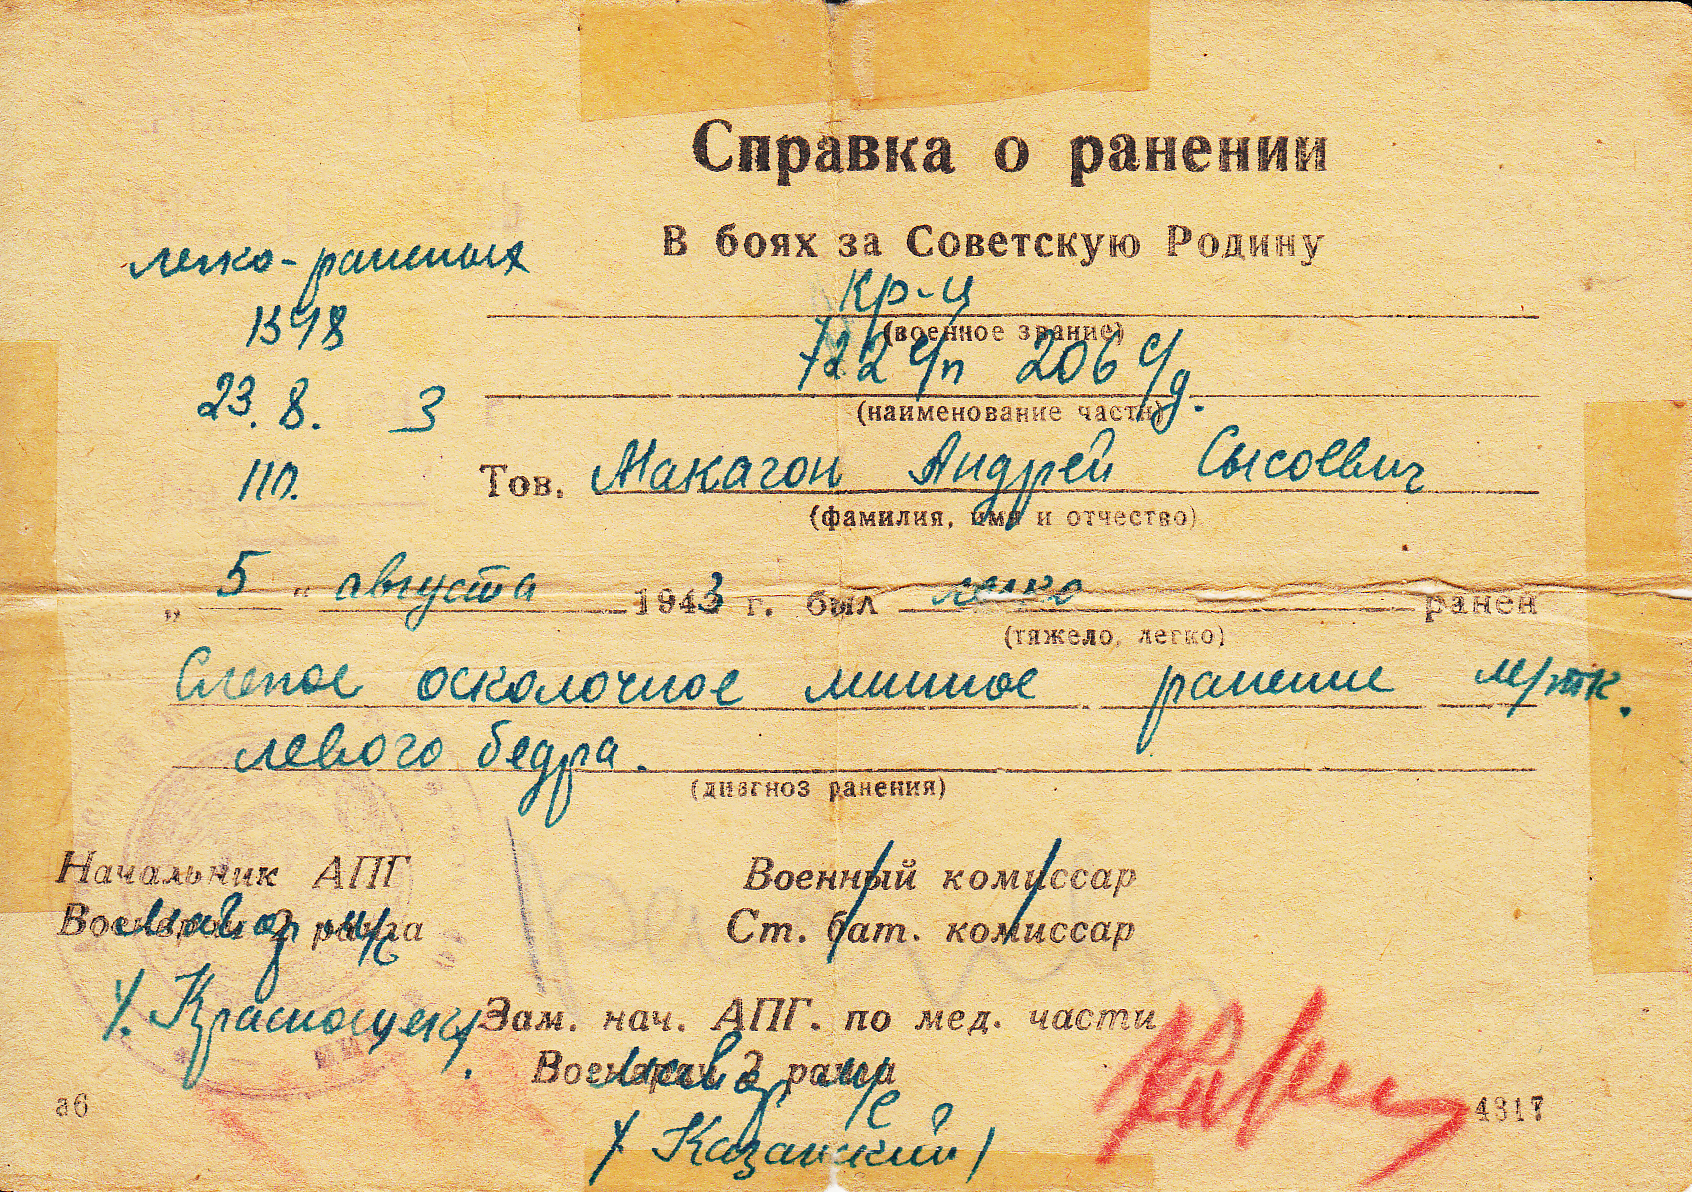 Справка о ранении
В боях за Советскую Родину
легко-раненых
1398
23. 8. 3
110.
кр-ц
(военное звание)
722 с/п 206 с/д.
(наименование части)
Тов. Макагон Андрей Сысоевич
(фамилия, имя и отчество)
„ 5 " августа 1943 г. был легко ранен
(тяжело, легко)
Слепое осколочное минное ранение м/тк.
левого бедра.
(диагноз ранения)
Начальник АПГ
Военврач 2 ранга
майор м/с
/. Краснощек/.
Военный комиссар
Ст. бат. комиссар
Зам. нач. АПГ. по мед. части
Военврач 2 ранга
майор м/с
/ Казанский /
аб
4317